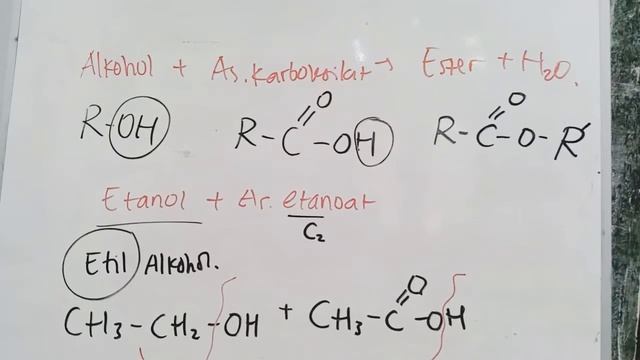 Alkohol + As. Karboksilat → Ester + H2O.
R-OH R-C(=O)-OH R-C(=O)-O-R'
Etanol + As. etanoat
C2
Etil Alkohol.
CH3-CH2-OH + CH3-C(=O)-OH